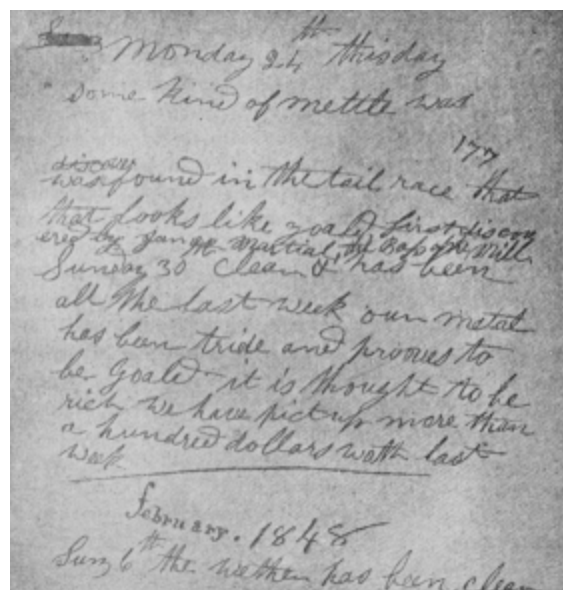 Monday 24th this day
some kind of mettle was
177
discover
was found in the tail race that
that looks like goald first discov
ered by James Martial, the Boss of the Mill.
Sunday 30 Clean & has been
all the last week our metal
has been tride and prooves to
be goald it is thought to be
rich we have pict up more than
a hundred dollars woth last
week
February. 1848
Sun 6th the wether has been clear